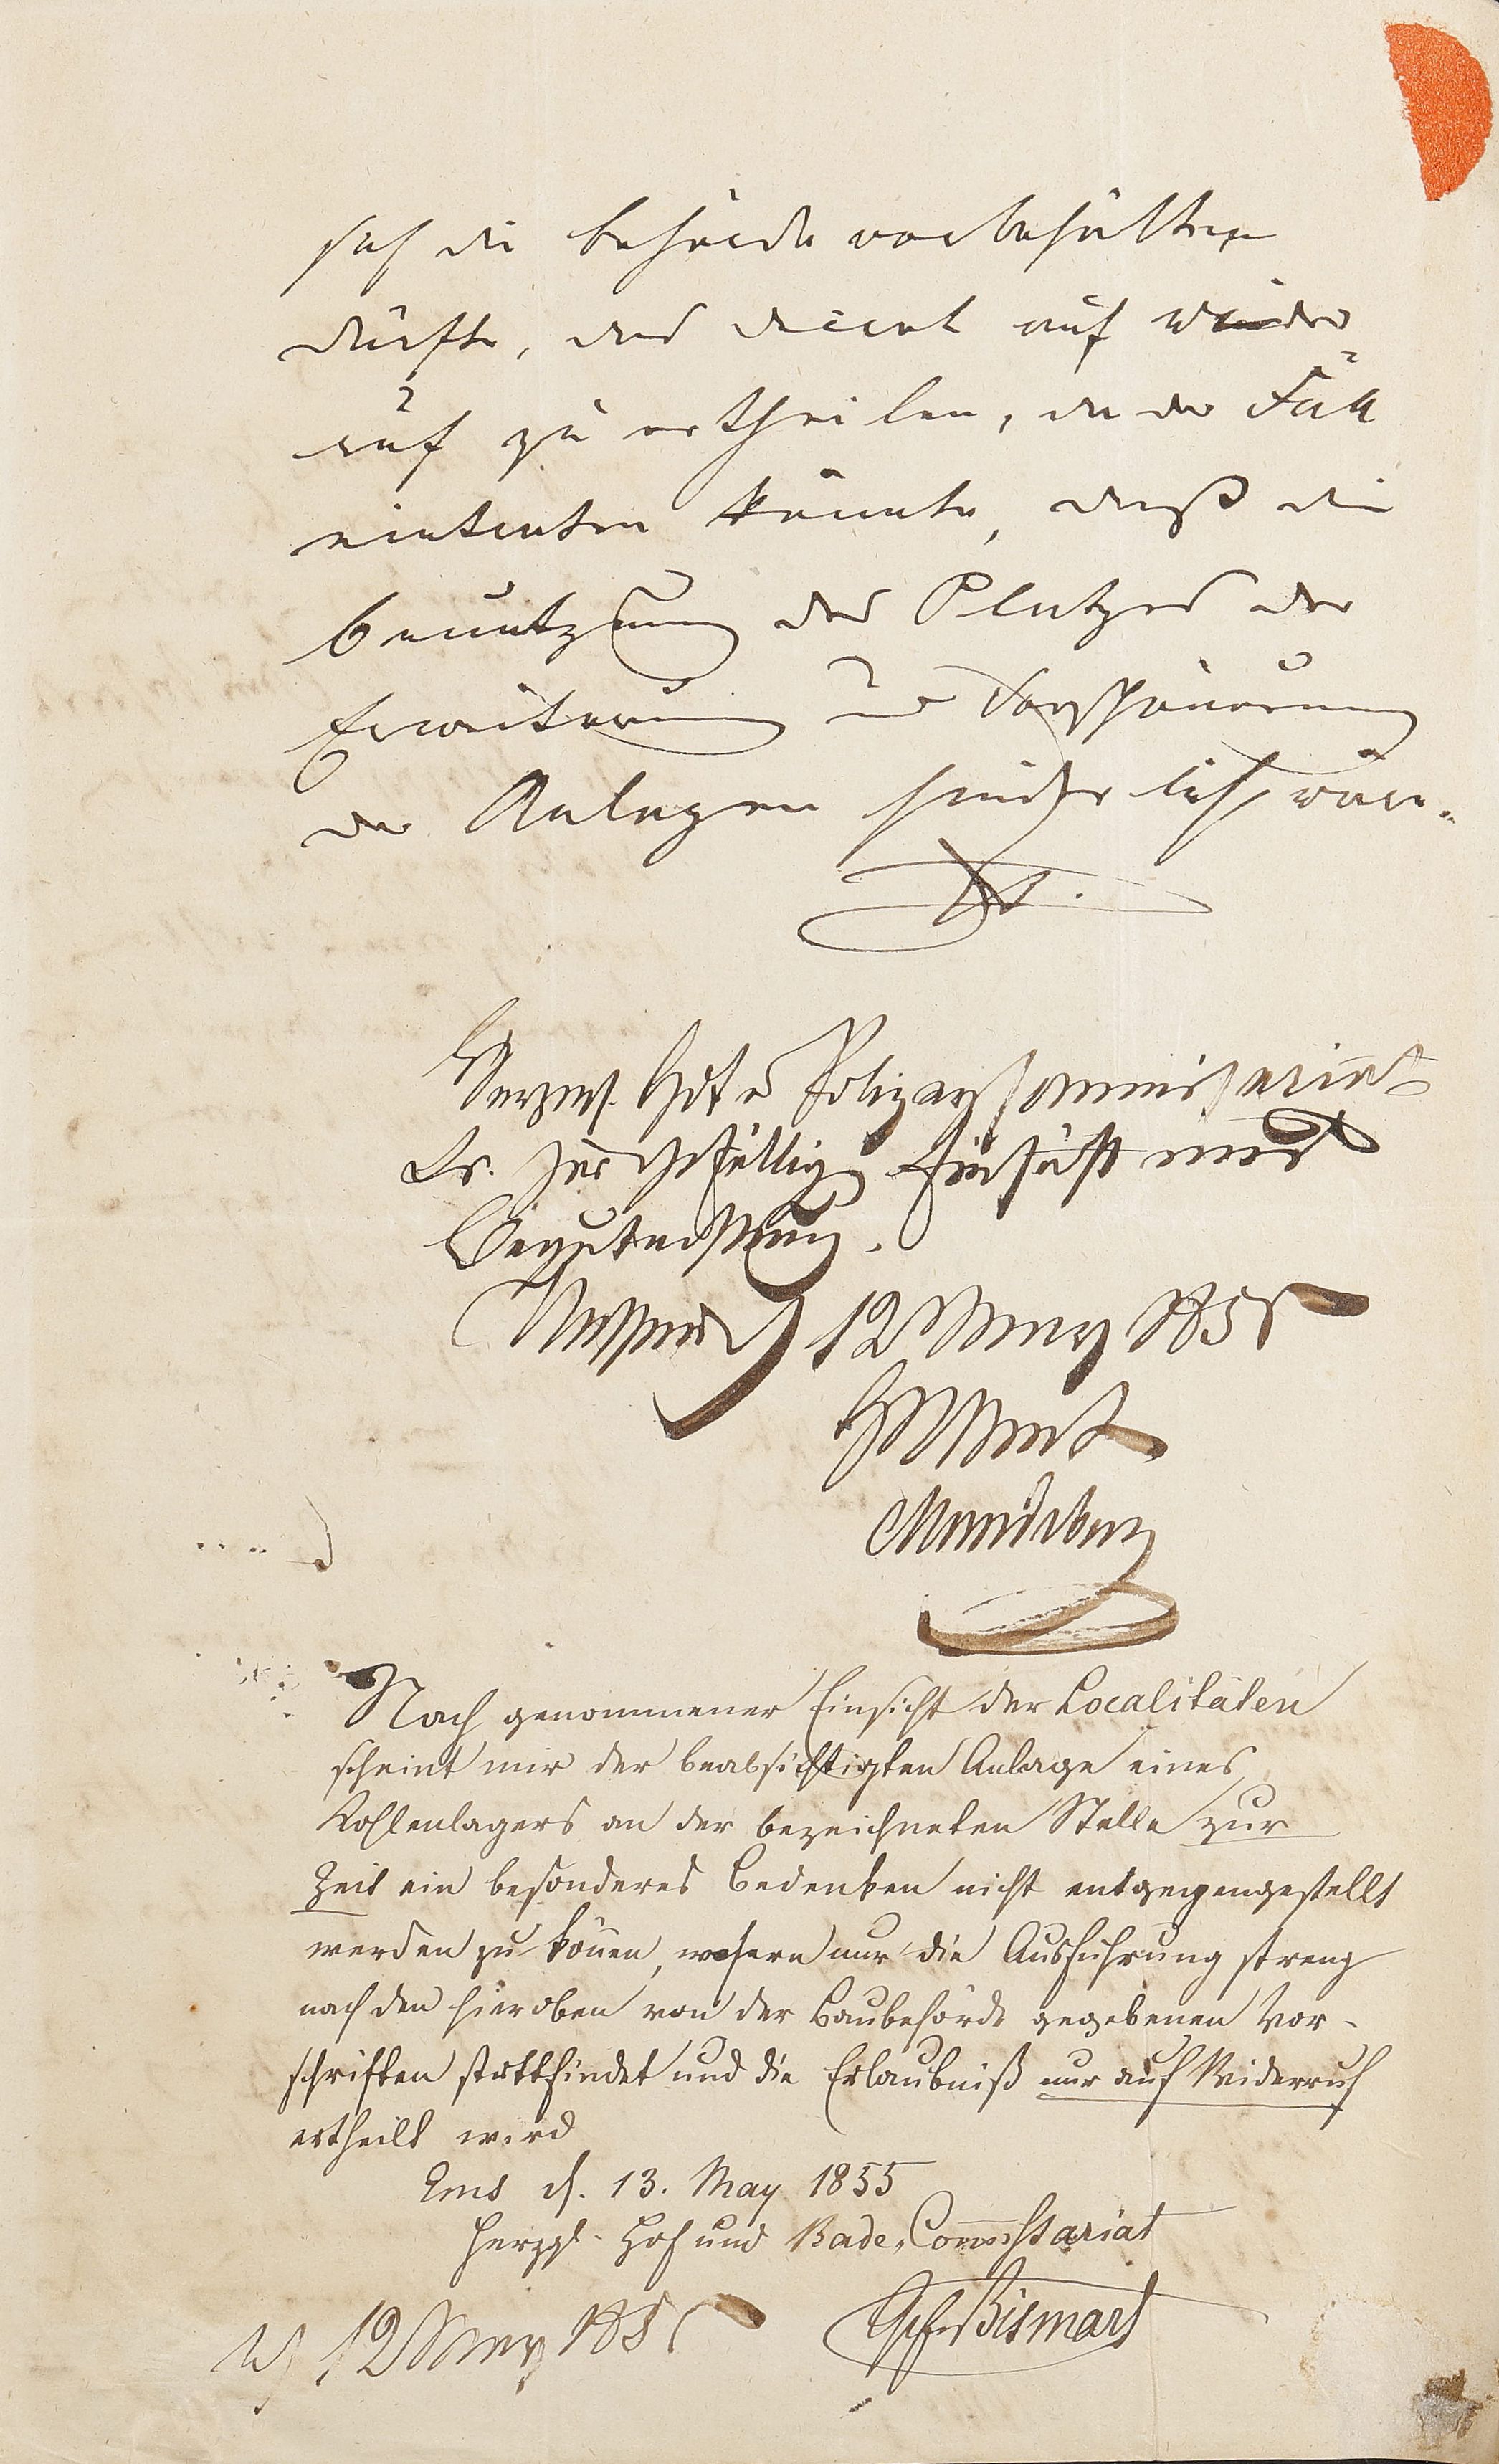 sich die behörde vorbehalten
dürfte, das decret auf wieder
ruf zu ertheilen, da der Fall
eintreten könnte, daß die
benutzung des Platzes der
Erweiterung u Verschönerung
der Anlagen hinderlich wäre.
Herzogl. Polizeycommissariat
zur gefälligen Einsicht und
Begutachtung.
Nassau 12 May 1855
HNAmt
Nach genommener Einsicht der Localitäten
scheint mir der beabsichtigten Anlage eines
Kohlenlagers an der bezeichneten Stelle zur
Zeit ein besonderes Bedenken nicht entgegengestellt
werden zu können, wofern nur die Ausführung streng
nach den hieroben von der Baubehörde gegebenen Vor-
schriften stattfindet und die Erlaubniß nur auf Widerruf
ertheilt wird
Ems d. 13. May 1855
Herzgl. Hof und Bade-Commissariat
12 May 1855 Gf. Bismark